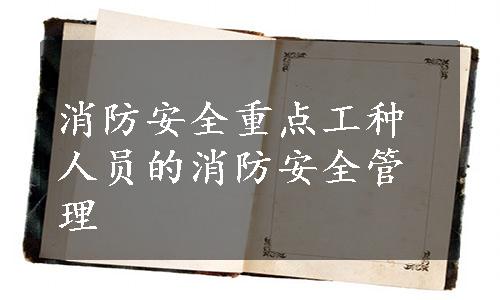 消防安全重点工种
人员的消防安全管
理